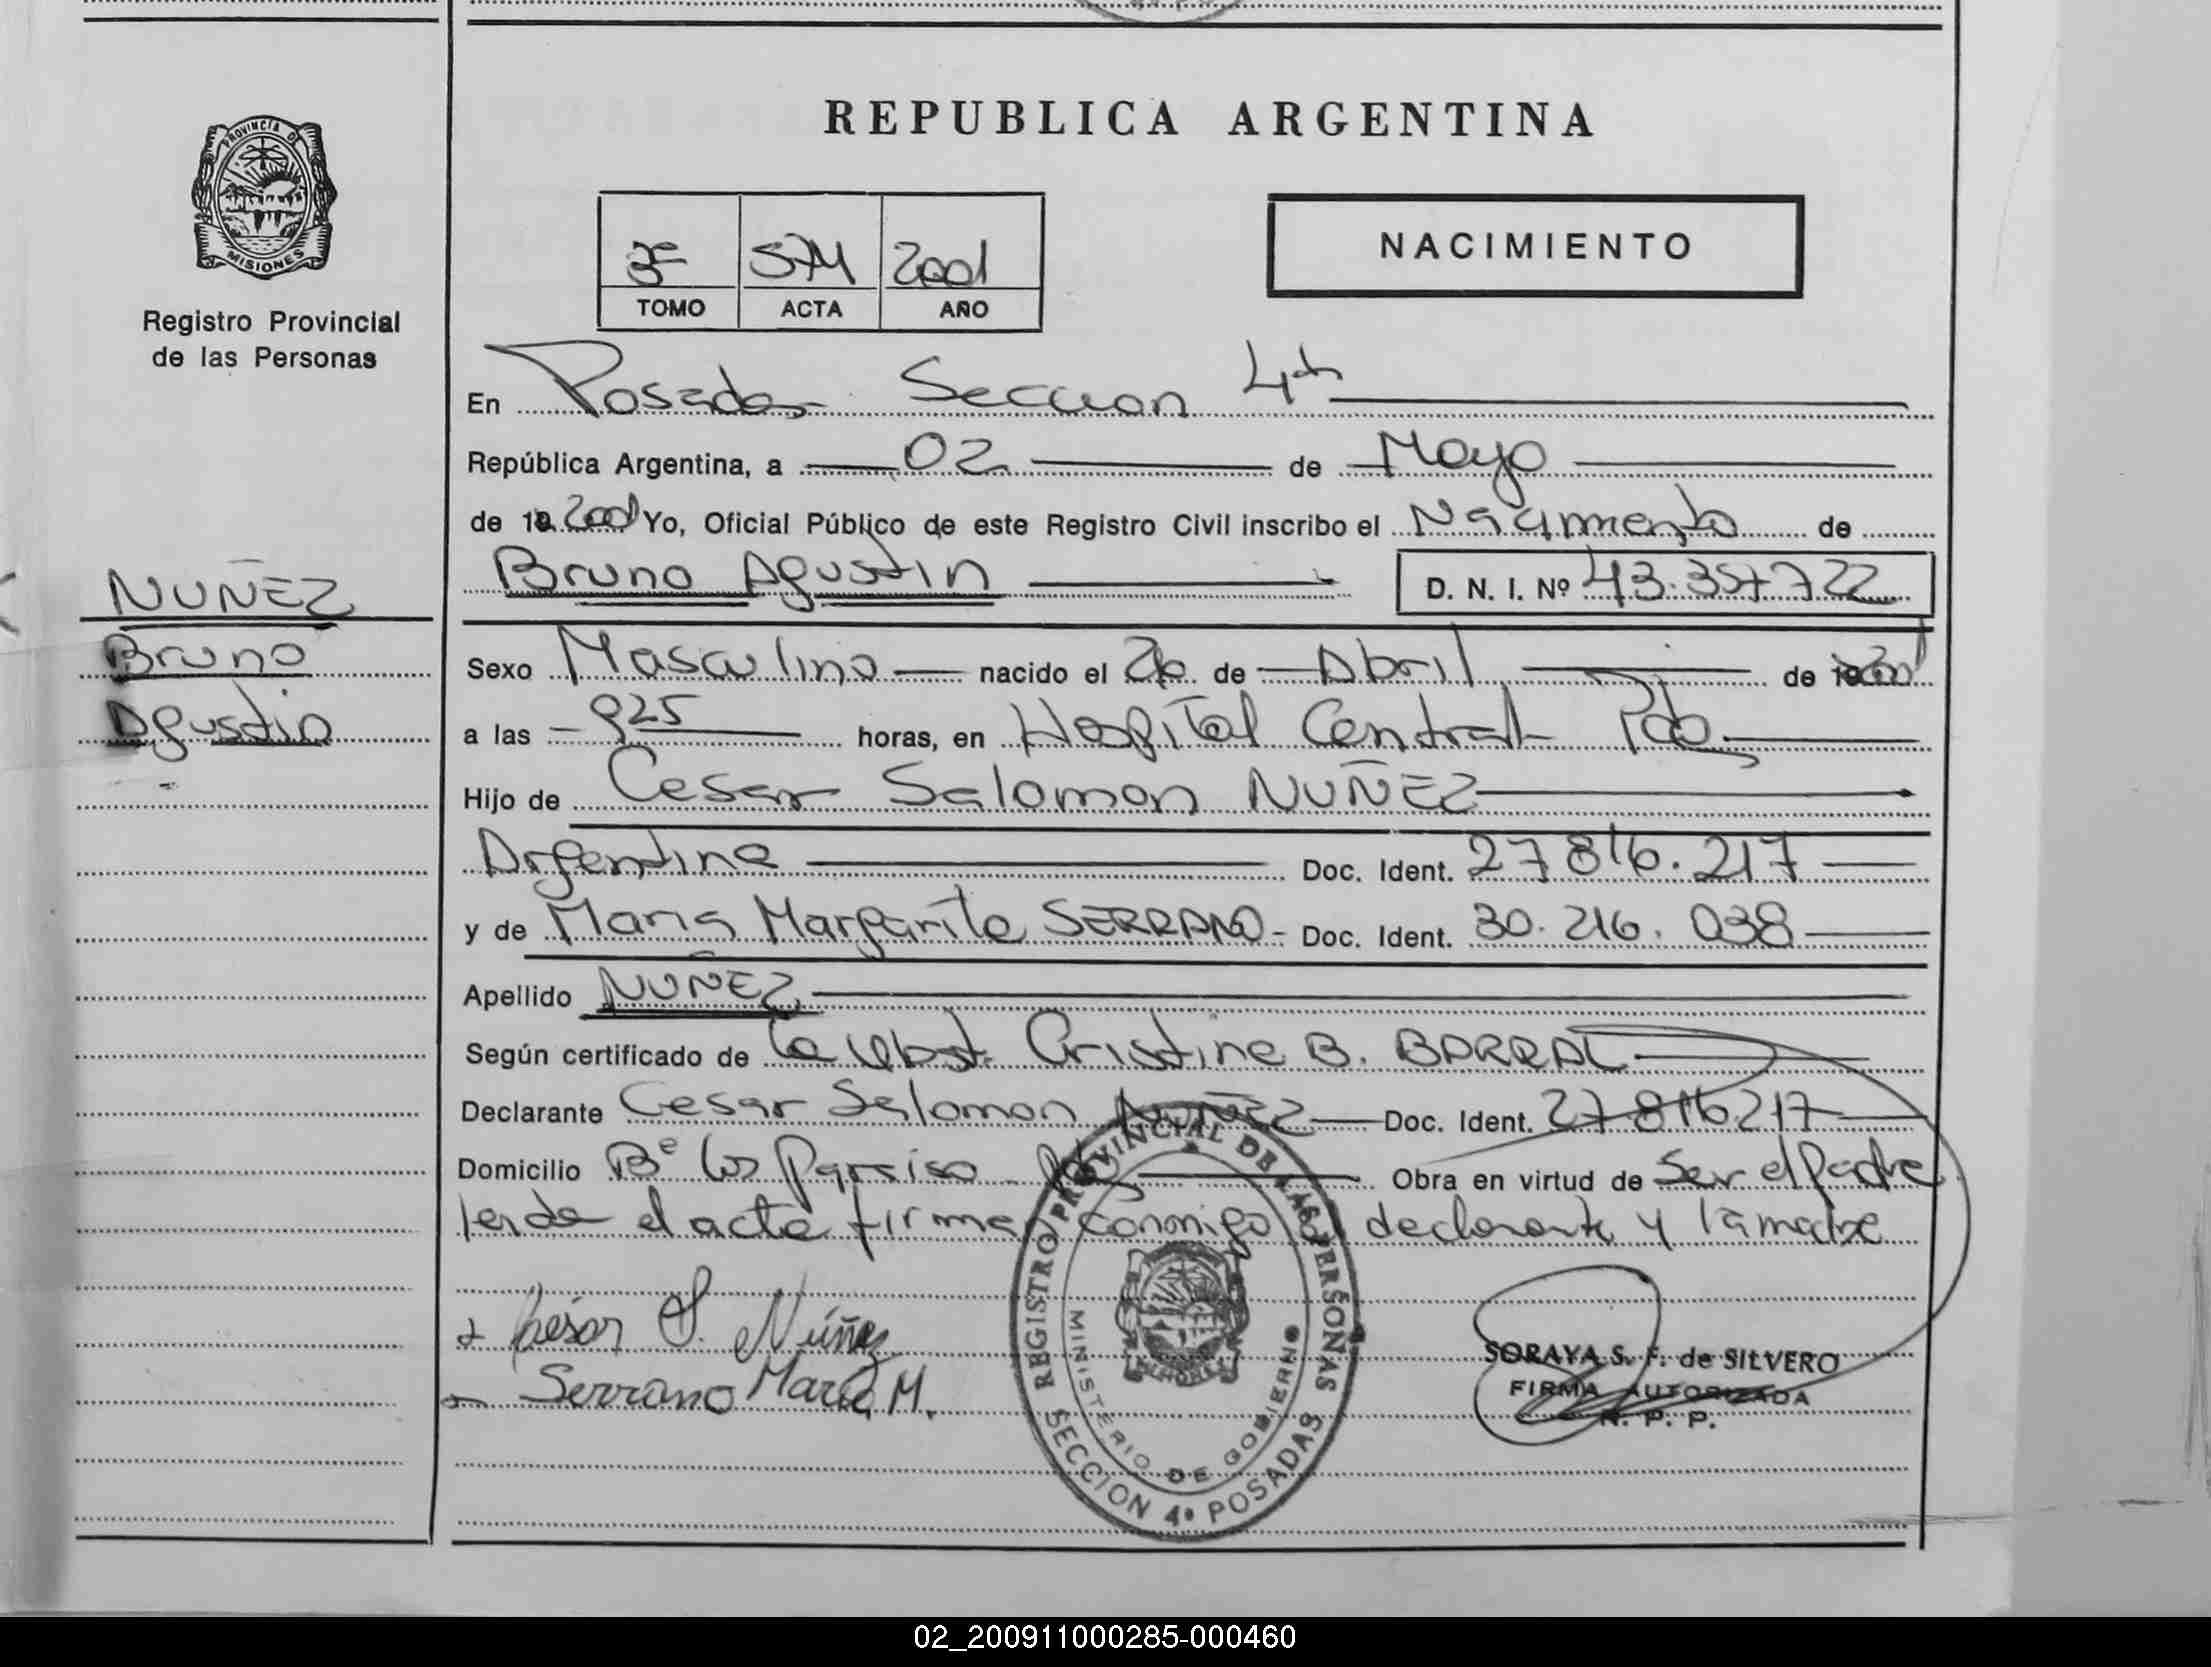 REPUBLICA ARGENTINA
PROVINCIA DE
MISIONES
Registro Provincial
de las Personas
3º 574 2001
TOMO ACTA AÑO
NACIMIENTO
En Posadas Seccion 4ta
República Argentina, a 02 de Mayo
de 19 2001 Yo, Oficial Público de este Registro Civil inscribo el Nacimiento de
Bruno Agustin D. N. I. Nº 43.357722
NUÑEZ
Bruno
Agustin
Sexo Masculino nacido el 26 de Abril de 2001
a las 925 horas, en Hospital Central Pdas
Hijo de Cesar Salomon NUÑEZ
Argentina Doc. Ident. 27816.217
y de Maria Margarita SERRANO Doc. Ident. 30.216.038
Apellido NUÑEZ
Según certificado de la Obst. Cristina B. BARRAL
Declarante Cesar Salomon NUÑEZ Doc. Ident. 27816217
Domicilio Bº los Paraiso Pdas Obra en virtud de Ser el Padre
leida el acta firman conmigo el declarante y la madre
César S. Núñez
Serrano María M.
REGISTRO PROVINCIAL DE LAS PERSONAS
MINISTERIO DE GOBIERNO
SECCION 4ª POSADAS
SORAYA S. F. de SILVERO
FIRMA AUTORIZADA
R. P. P.
02_200911000285-000460